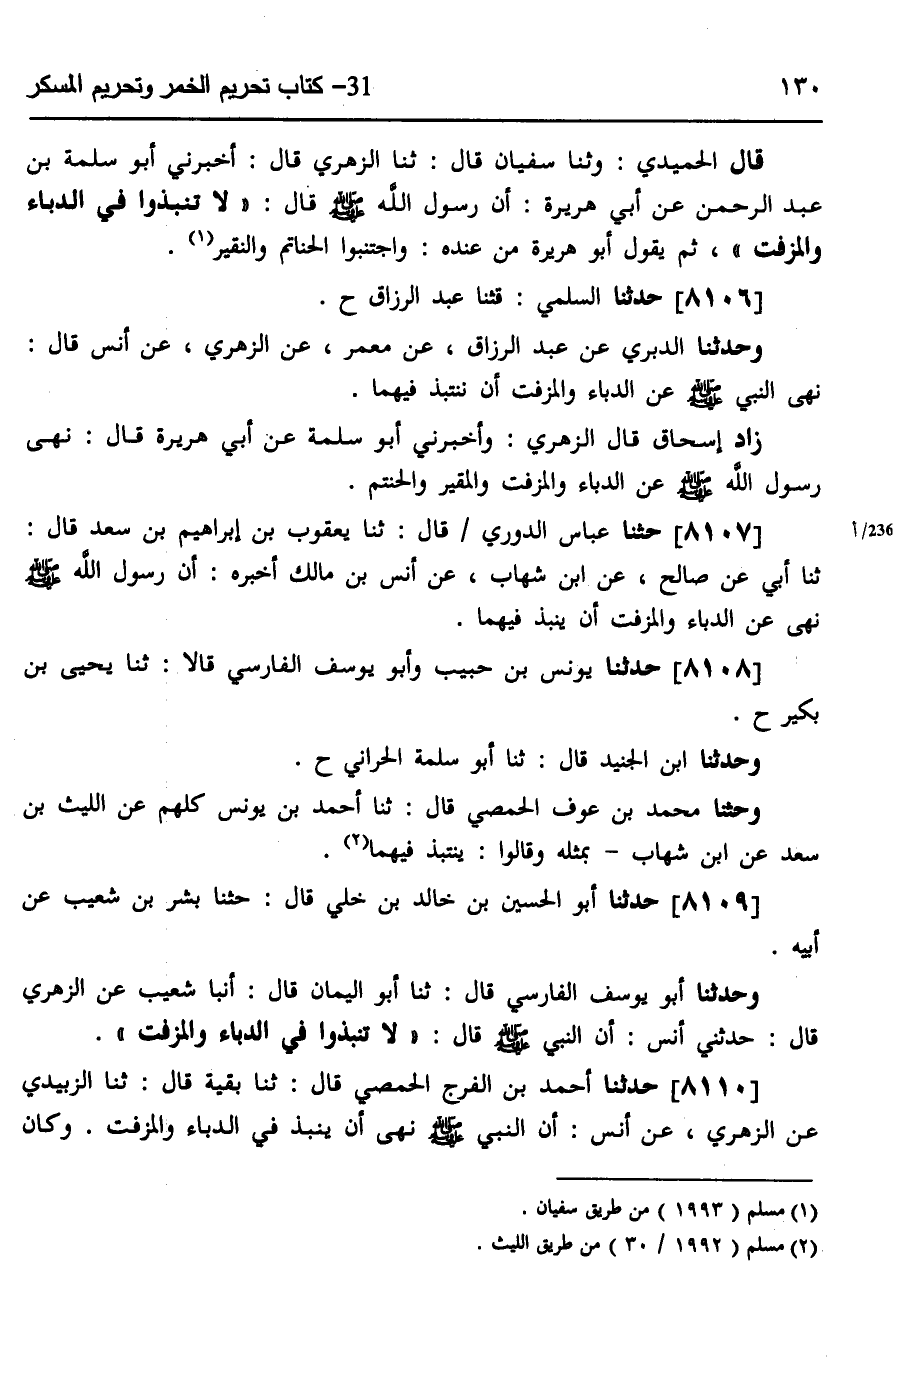 ١٣٠ 31- كتاب تحريم الخمر وتحريم المسكر
قال الحميدي : وثنا سفيان قال : ثنا الزهري قال : أخبرني أبو سلمة بن
عبد الرحمن عن أبي هريرة : أن رسول اللَّه ﷺ قال : « لا تنبذوا في الدباء
والمزفت » ، ثم يقول أبو هريرة من عنده : واجتنبوا الحناتم والنقير(١) .
[٨١٠٦] حدثنا السلمي : قثنا عبد الرزاق ح .
وحدثنا الدبري عن عبد الرزاق ، عن معمر ، عن الزهري ، عن أنس قال :
نهى النبي ﷺ عن الدباء والمزفت أن ننتبذ فيهما .
زاد إسحاق قال الزهري : وأخبرني أبو سلمة عن أبي هريرة قال : نهى
رسول اللَّه ﷺ عن الدباء والمزفت والمقير والحنتم .
[٨١٠٧] حثنا عباس الدوري / قال : ثنا يعقوب بن إبراهيم بن سعد قال : 236/أ
ثنا أبي عن صالح ، عن ابن شهاب ، عن أنس بن مالك أخبره : أن رسول اللَّه ﷺ
نهى عن الدباء والمزفت أن ينبذ فيهما .
[٨١٠٨] حدثنا يونس بن حبيب وأبو يوسف الفارسي قالا : ثنا يحيى بن
بكير ح .
وحدثنا ابن الجنيد قال : ثنا أبو سلمة الحراني ح .
وحثنا محمد بن عوف الحمصي قال : ثنا أحمد بن يونس كلهم عن الليث بن
سعد عن ابن شهاب – بمثله وقالوا : ينتبذ فيهما(٢) .
[٨١٠٩] حدثنا أبو الحسين بن خالد بن خلي قال : حثنا بشر بن شعيب عن
أبيه .
وحدثنا أبو يوسف الفارسي قال : ثنا أبو اليمان قال : أنبا شعيب عن الزهري
قال : حدثني أنس : أن النبي ﷺ قال : « لا تنبذوا في الدباء والمزفت » .
[٨١١٠] حدثنا أحمد بن الفرج الحمصي قال : ثنا بقية قال : ثنا الزبيدي
عن الزهري ، عن أنس : أن النبي ﷺ نهى أن ينبذ في الدباء والمزفت . وكان
(١) مسلم ( ١٩٩٣ ) من طريق سفيان .
(٢) مسلم ( ١٩٩٢ / ٣٠ ) من طريق الليث .